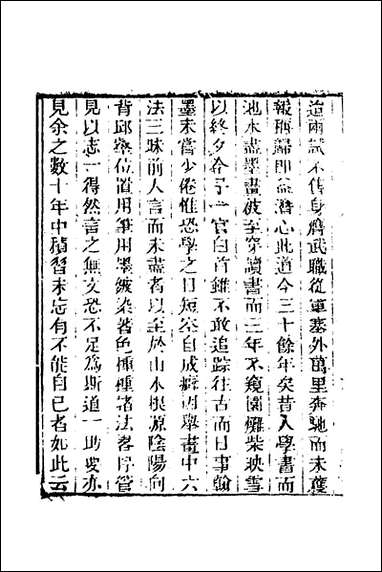 道兩試不售身膺武職從軍塞外萬里奔馳而未獲
報稱歸卽益潛心此道今三十餘年矣昔人學書而
池水盡墨畫被至穿讀書而三年不窺園爇柴映雪
以終夕余于一官白首雖不敢追踪往古而日事翰
墨未嘗少倦惟恐學之日短案自成癖因舉畫中六
法三昧前人言而未盡者以至於山水根源陰陽向
背邱壑位置用筆用墨皴染著色種種諸法畧序管
見以志一得然言之無文恐不足爲斯道一助要亦
見余之數十年中積習未忘有不能自已者如此云